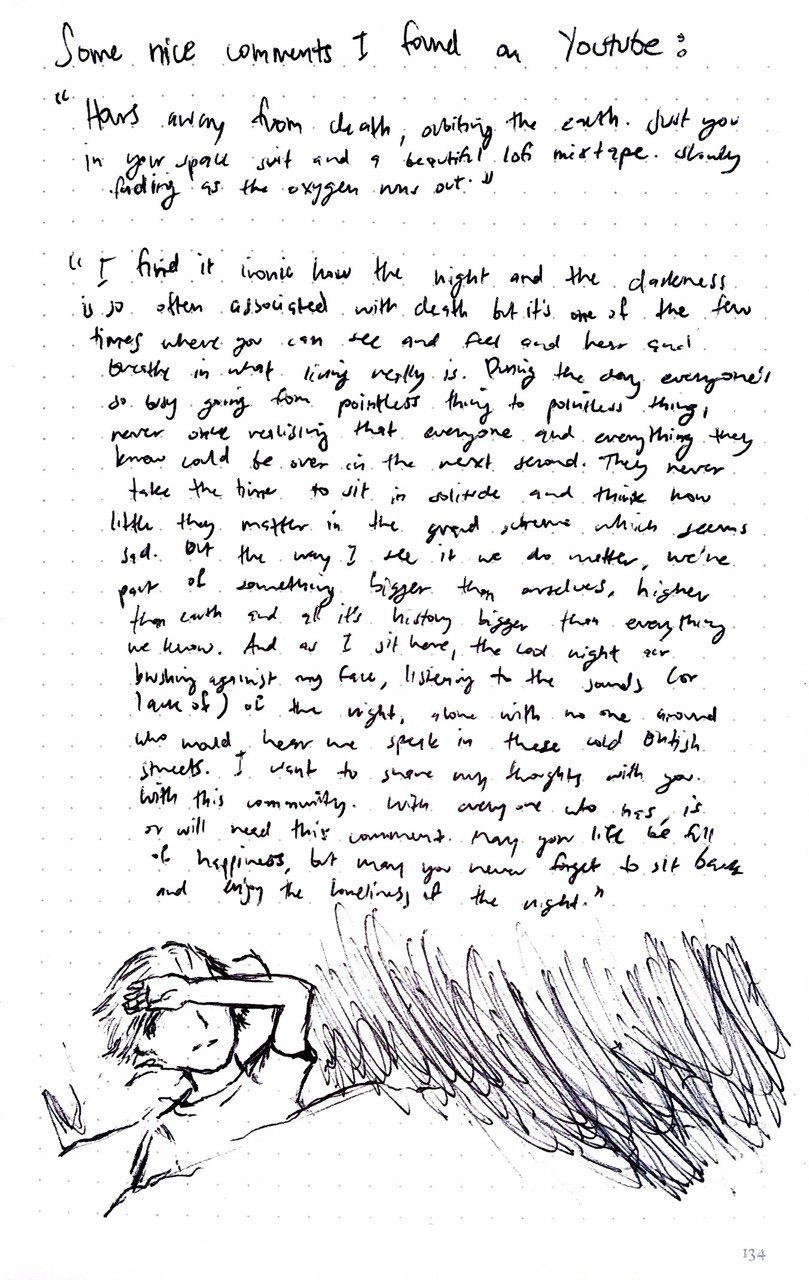 Some nice comments I found on Youtube:
"Hours away from death, orbiting the earth. Just you
in your space suit and a beautiful lofi mixtape. Slowly
fading as the oxygen runs out."
"I find it ironic how the night and the darkness
is so often associated with death but it's one of the few
times where you can see and feel and hear and
breathe in what living really is. During the day everyone's
so busy going from pointless thing to pointless thing,
never once realising that everyone and everything they
know could be over in the next second. They never
take the time to sit in solitude and think how
little they matter in the grand scheme which seems
sad. But the way I see it we do matter, we're
part of something bigger than ourselves, higher
than earth and all it's history bigger than everything
we know. And as I sit here, the cool night air
brushing against my face, listening to the sounds (or
lack of) of the night, alone with no one around
who would hear me speak in these cold British
streets. I want to share my thoughts with you.
With this community. With everyone who has, is
or will read this comment. May your life be full
of happiness, but may you never forget to sit back
and enjoy the loneliness of the night."
134